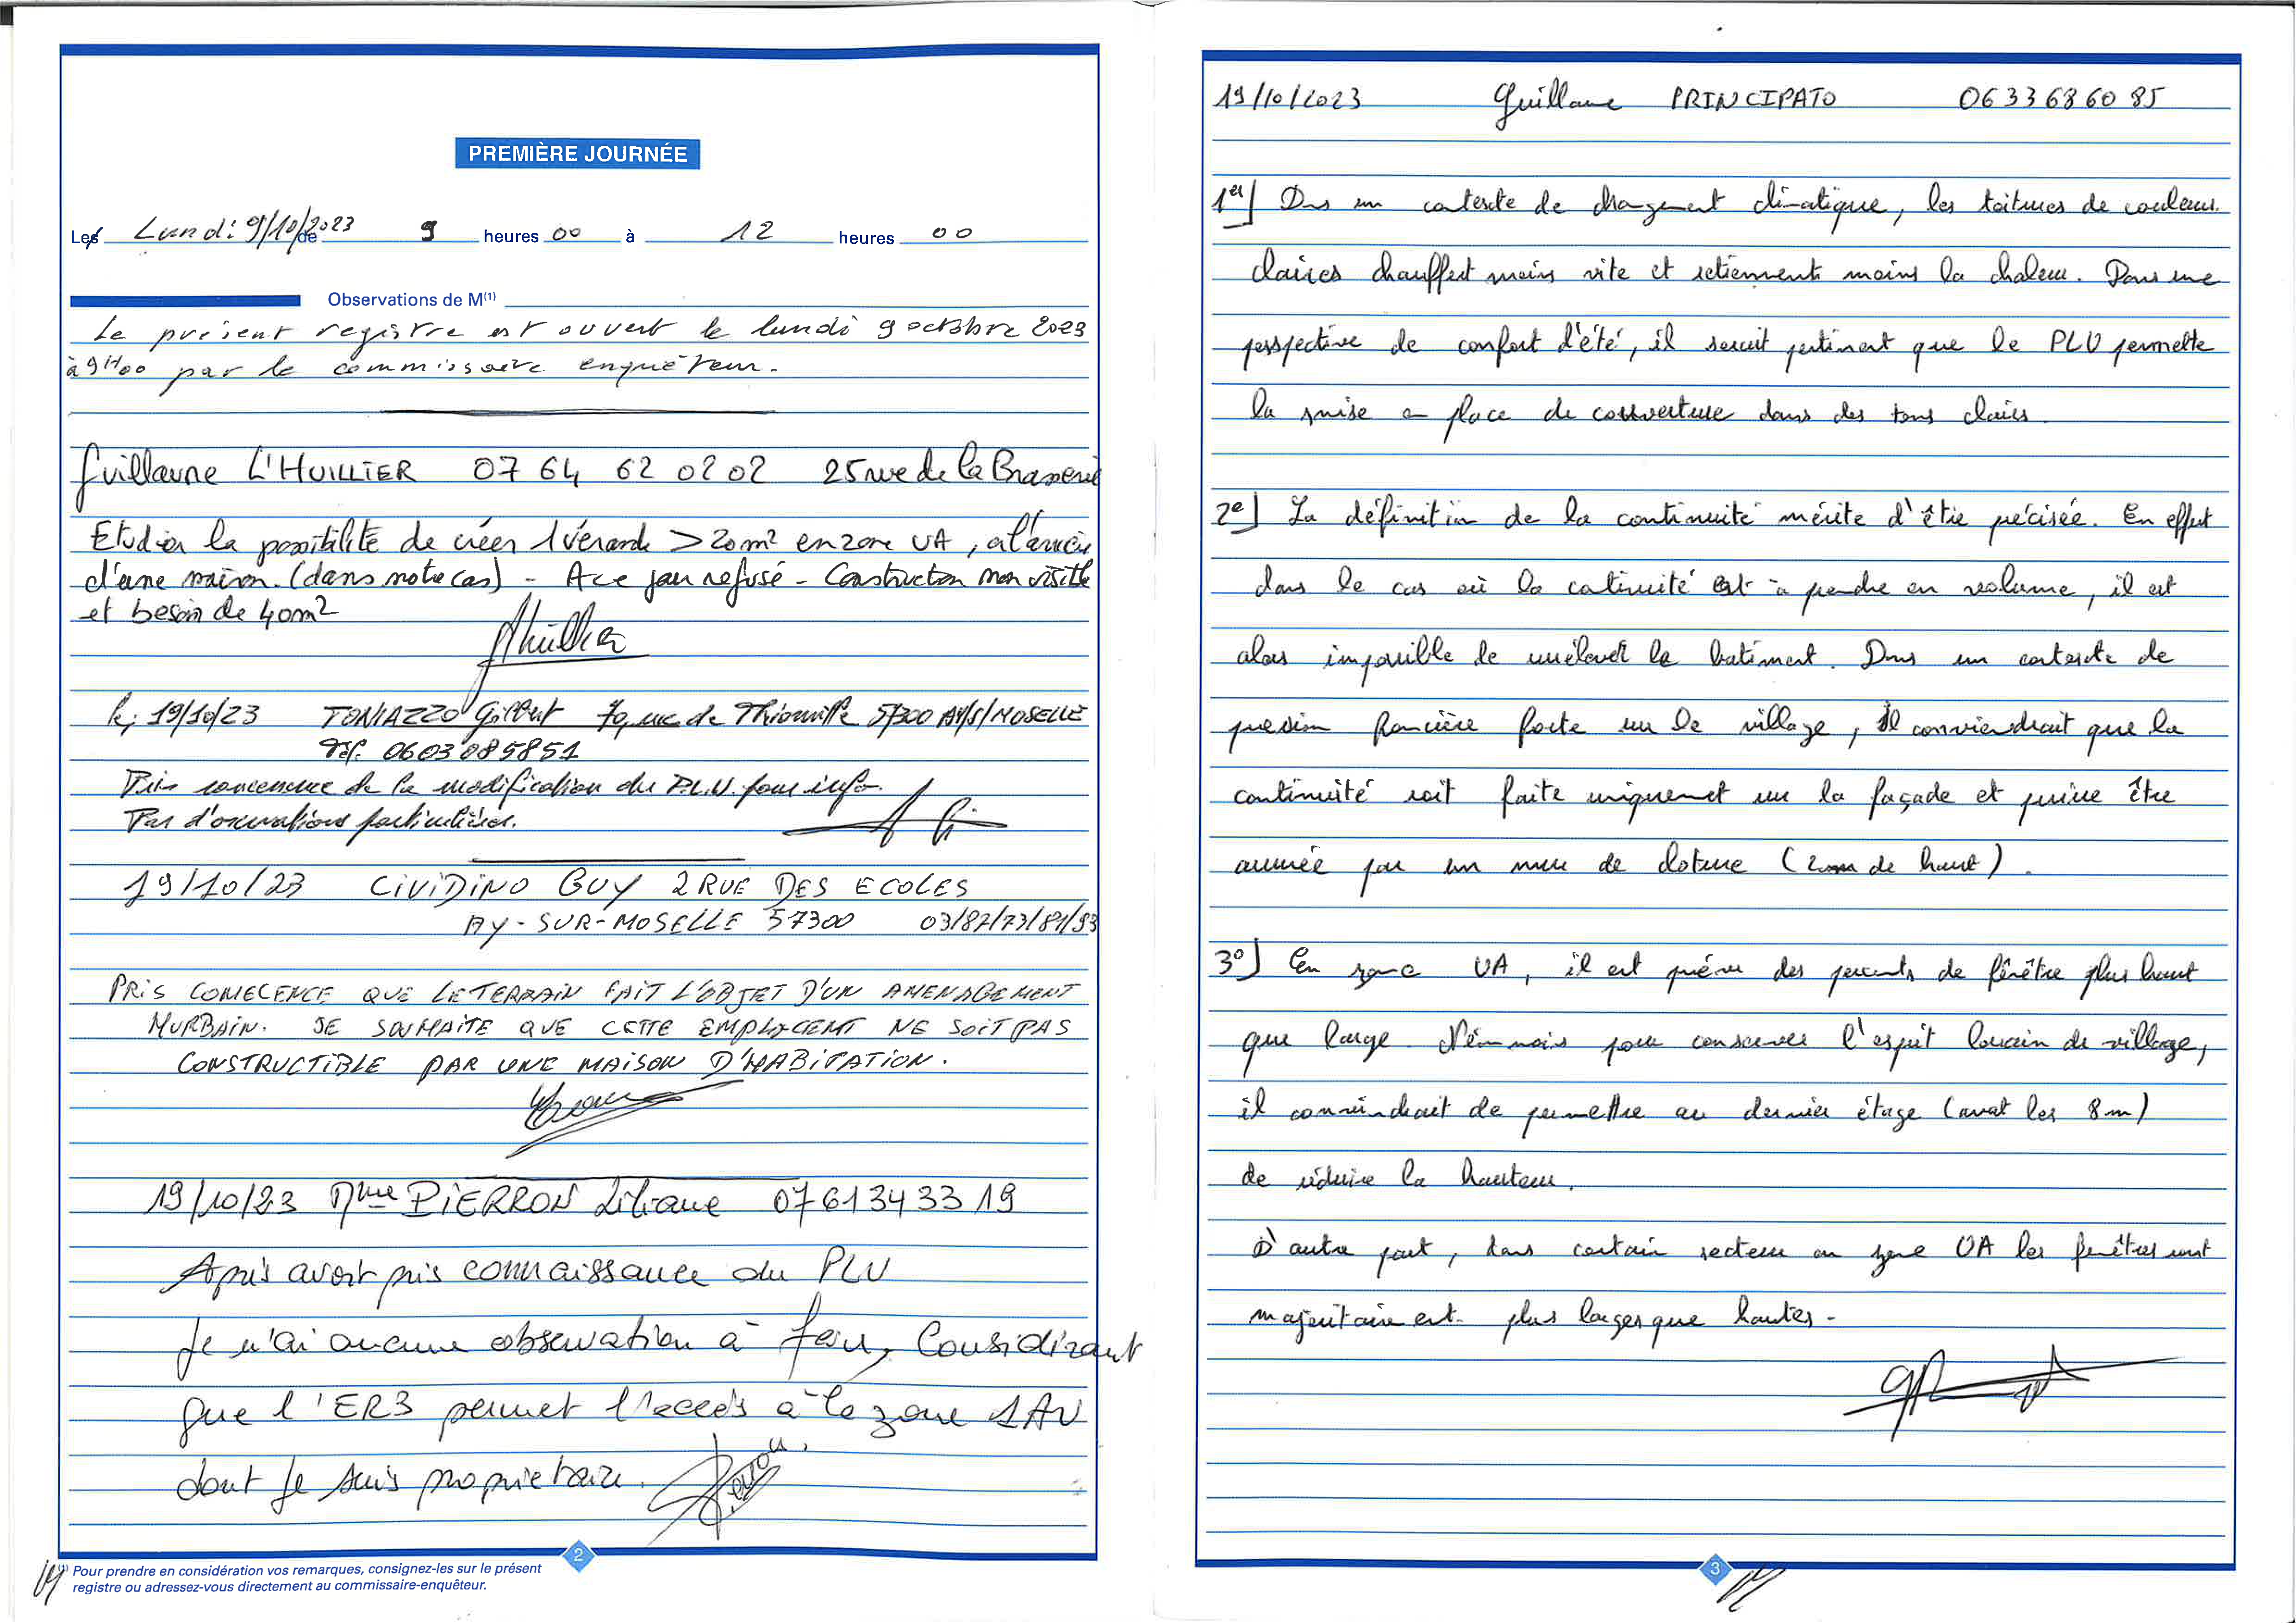 PREMIÈRE JOURNÉE
Les Lundi 9/10/2023 de 9 heures 00 à 12 heures 00
Observations de M(1)
Le présent registre est ouvert le lundi 9 octobre 2023
à 9H00 par le commissaire enquêteur.
Guillaume L'HUILLIER 07 64 62 02 02 25 rue de la Brasserie
Etudier la possibilité de créer 1 véranda > 20m² en zone UA, à l'arrière
d'une maison. (dans notre cas) - A ce jour refusé - Construction non visible
et besoin de 40m2
le; 19/10/23 TONIAZZO Gilbert 70, rue de Thionville 57300 AY/S/MOSELLE
Tél. 0603085851
Pris connaissance de la modification du P.L.U. pour info.
Pas d'observations particulières.
19/10/23 CIVIDINO GUY 2 RUE DES ECOLES
AY-SUR-MOSELLE 57300 03/82/73/81/93
PRIS CONECENCE QUE LE TERRAIN FAIT L'OBJET D'UN AMENAGEMENT
MURBAIN. JE SOUHAITE QUE CETTE EMPLOCEMT NE SOIT PAS
CONSTRUCTIBLE PAR UNE MAISON D'HABITATION.
19/10/23 Mme PIERRON Liliane 07 61 34 33 19
Après avoir pris connaissance du PLU
Je n'ai aucune observation à faire, Considérant
que l'ER3 permet l'accès à la zone 1AU
dont je suis propriétaire.
2
(1) Pour prendre en considération vos remarques, consignez-les sur le présent
registre ou adressez-vous directement au commissaire-enquêteur.
19/10/2023 Guillaume PRINCIPATO 06 33 68 60 85
1er] Dans un contexte de changement climatique, les toitures de couleurs
claires chauffent moins vite et retiennent moins la chaleur. Dans une
perspective de confort d'été, il serait pertinent que le PLU permette
la mise en place de couverture dans des tons clairs
2e] La définition de la continuité mérite d'être précisée. En effet
dans le cas où la continuité est à prendre en volume, il est
alors impossible de surélever le batiment. Dans un contexte de
pression foncière forte sur le village, il conviendrait que la
continuité soit faite uniquement sur la façade et puisse être
assurée par un mur de cloture (2m de haut).
3°] En zone UA, il est prévu des percents de fenêtre plus haut
que large. Néanmois pour conserver l'esprit lorrain du village,
il conviendrait de permettre au dernier étage (avant les 8m)
de réduire la hauteur.
D'autre part, dans certain secteur en zone UA les fenêtres sont
majoritairement plus larges que hautes.
3